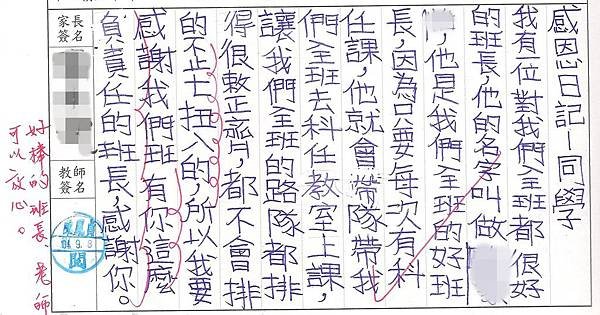 感恩日記—同學
我有一位對我們全班都很好
的班長,他的名字叫做
,他是我們全班的好班
長,因為只要每次有科
任課,他就會帶隊帶我
們全班去科任教室上課,
讓我們全班的路隊都排
得很整齊,都不會排
的歪七扭八的,所以我要
感謝我們班有你這麼
負責任的班長,感謝你。
家長簽名
教師簽名
104.9.8
閱
好棒的班長 老師
可以放心。